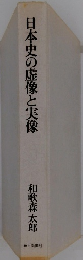 日本史の虚像と実像
和歌森太郎